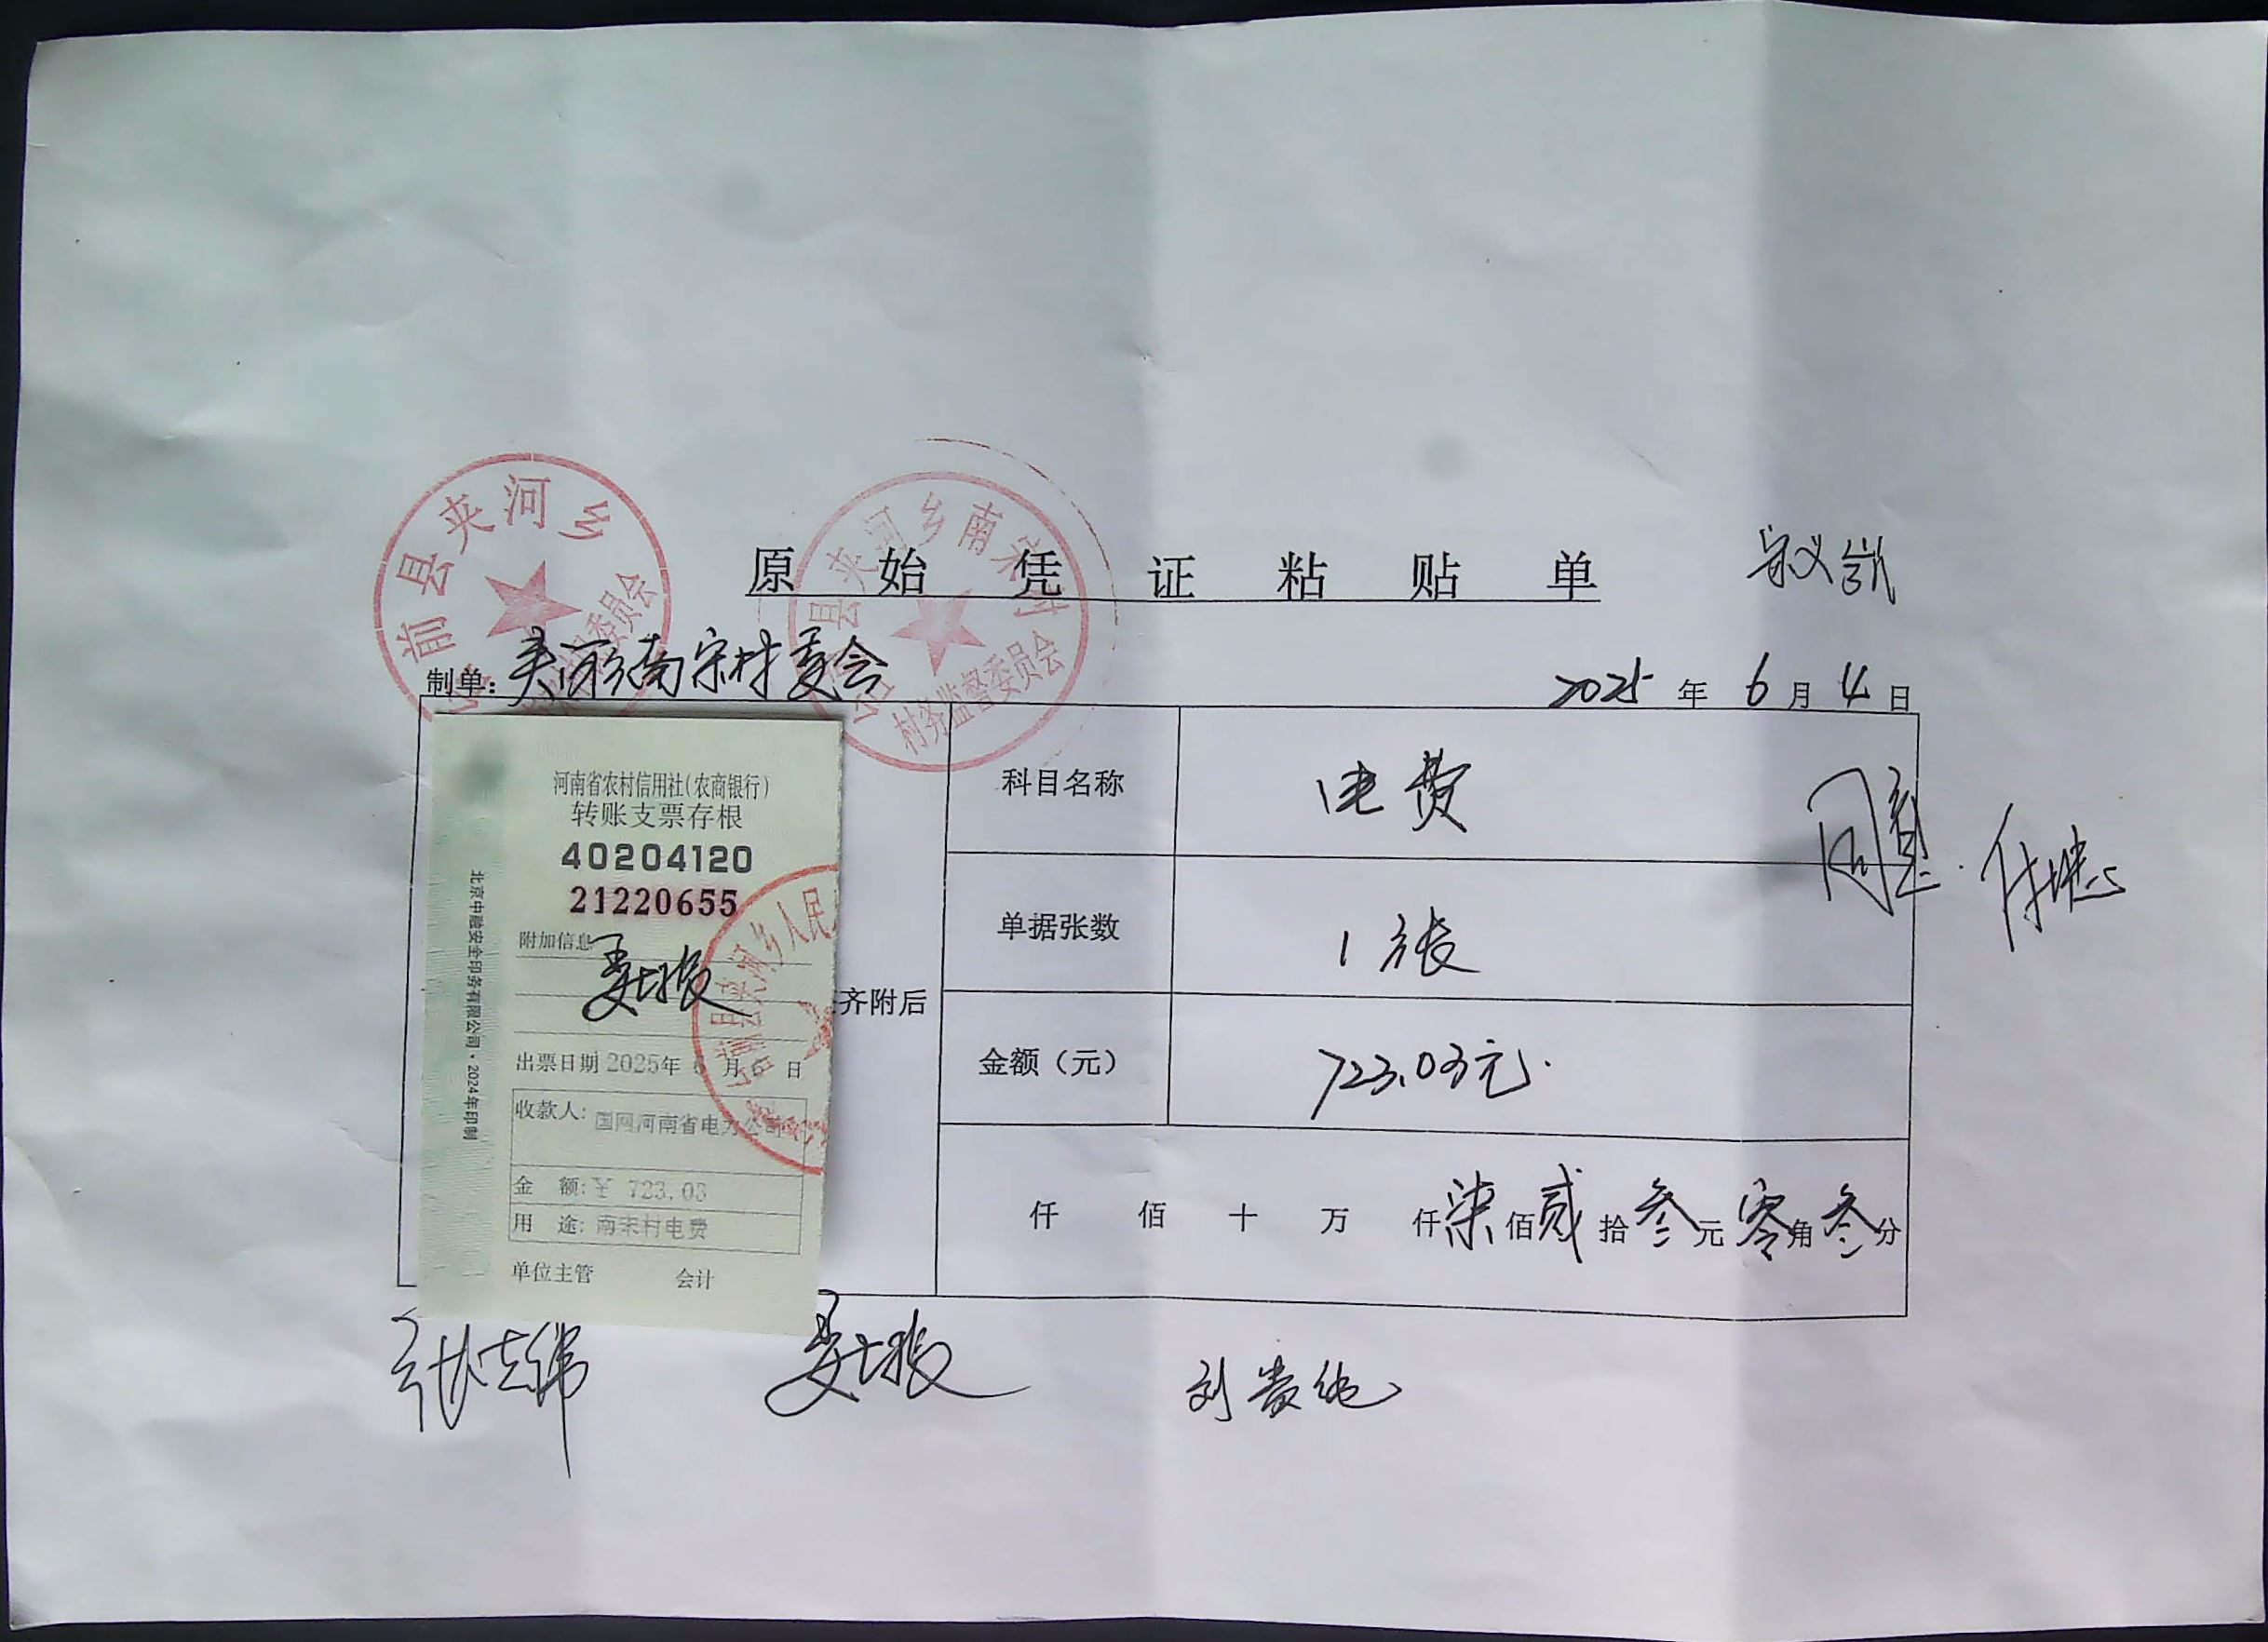 前县夹河乡
委员会
县夹河乡南宋村
村务监督委员会
原始凭证粘贴单
制单：夹河乡南宋村委会
2025年6月4日
河南省农村信用社（农商银行）
转账支票存根
40204120
21220655
附加信息
出票日期 2025年6月 日
收款人：国网河南省电力公司
金额：¥ 723.03
用途：南宋村电费
单位主管 会计
北京中融安全印务有限公司·2024年印制
县夹河乡人民
齐附后
科目名称 电费
单据张数 1张
金额（元） 723.03元.
仟佰十万仟柒佰贰拾叁元零角叁分
同意.
刘贵